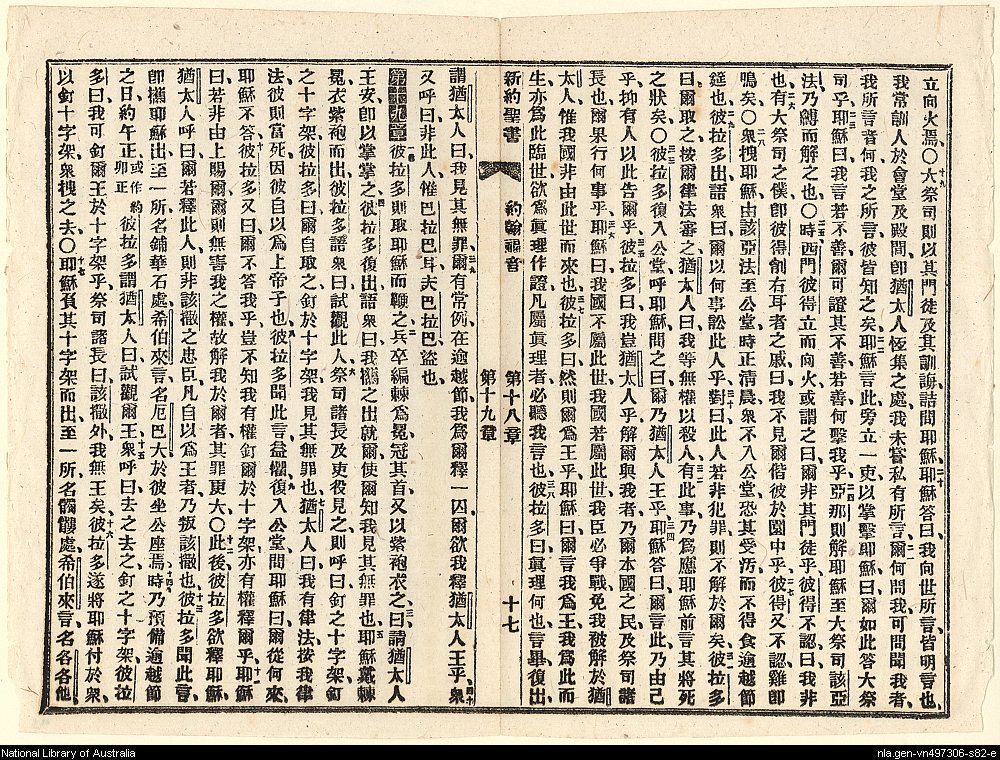 立向火焉〇大祭司則以其門徒及其訓誨詰問耶穌耶穌答曰我向世所言皆明言也
我常訓人於會堂及殿間卽猶太人恆集之處我未嘗私有所言爾何問我可問聞我者
我所言者何我之所言彼皆知之矣耶穌言此旁立一吏以掌擊耶穌曰爾如此答大祭
司乎耶穌曰我言若不善爾可證其不善若善何擊我乎亞那則解耶穌至大祭司該亞
法乃縛而解之也〇時西門彼得立而向火或謂之曰爾非其門徒乎彼得不認曰我非
也有大祭司之僕卽彼得削右耳者之戚曰我不見爾偕彼於園中乎彼得又不認雞卽
鳴矣〇衆拽耶穌由該亞法至公堂時正清晨衆不入公堂恐其受汚而不得食逾越節
筵也彼拉多出語衆曰爾以何事訟此人乎對曰此人若非犯罪則不解於爾矣彼拉多
曰爾取之按爾律法審之猶太人曰我等無權以殺人有此事乃爲應耶穌前言其將死
之狀矣〇彼拉多復入公堂呼耶穌問之曰爾乃猶太人王乎耶穌答曰爾言此乃由己
乎抑有人以此告爾乎彼拉多曰我豈猶太人乎解爾與我者乃爾本國之民及祭司諸
長也爾果行何事乎耶穌曰我國不屬此世我國若屬此世我臣必爭戰免我被解於猶
太人惟我國非由此世而來也彼拉多曰然則爾爲王乎耶穌曰爾言我爲王我爲此而
生亦爲此臨世欲爲眞理作證凡屬眞理者必聽我言也彼拉多曰眞理何也言畢復出
新約聖書 約翰福音 第十八章 第十九章 十七
謂猶太人曰我見其無罪爾有常例在逾越節我爲爾釋一囚爾欲我釋猶太人王乎衆
又呼曰非此人惟巴拉巴耳夫巴拉巴盜也
第十九章 彼拉多則取耶穌而鞭之兵卒編棘爲冕冠其首又以紫袍衣之曰請猶太人
王安卽以掌掌之彼拉多復出語衆曰我攜之出就爾使爾知我見其無罪也耶穌戴棘
冕衣紫袍而出彼拉多語衆曰試觀此人祭司諸長及吏役見之則呼曰釘之十字架釘
之十字架彼拉多曰爾自取之釘於十字架我見其無罪也猶太人曰我有律法按我律
法彼則當死因彼自以爲上帝子也彼拉多聞此言益懼復入公堂問耶穌曰爾從何來
耶穌不答彼拉多又曰爾不答我乎豈不知我有權釘爾於十字架亦有權釋爾乎耶穌
曰若非由上賜爾爾則無害我之權故解我於爾者其罪更大〇此後彼拉多欲釋耶穌
猶太人呼曰爾若釋此人則非該撒之忠臣凡自以爲王者乃叛該撒也彼拉多聞此言
卽攜耶穌出至一所名鋪華石處希伯來言名厄巴大於彼坐公座焉時乃預備逾越節
之日約午正或作約卯正彼拉多謂猶太人曰試觀爾王衆呼曰去之去之釘之十字架彼拉
多曰我可釘爾王於十字架乎祭司諸長曰該撒外我無王矣彼拉多遂將耶穌付於衆
以釘十字架衆拽之去〇耶穌負其十字架而出至一所名髑髏處希伯來言名各各他
National Library of Australia
nla.gen-vn497306-s82-e